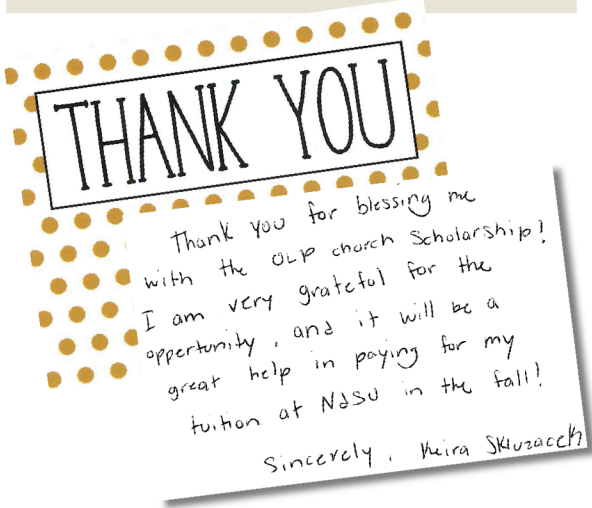 THANK YOU
Thank you for blessing me
with the OLP church Scholarship!
I am very grateful for the
oppertunity, and it will be a
great help in paying for my
tuition at NDSU in the fall!
Sincerely, Keira Skluzacek